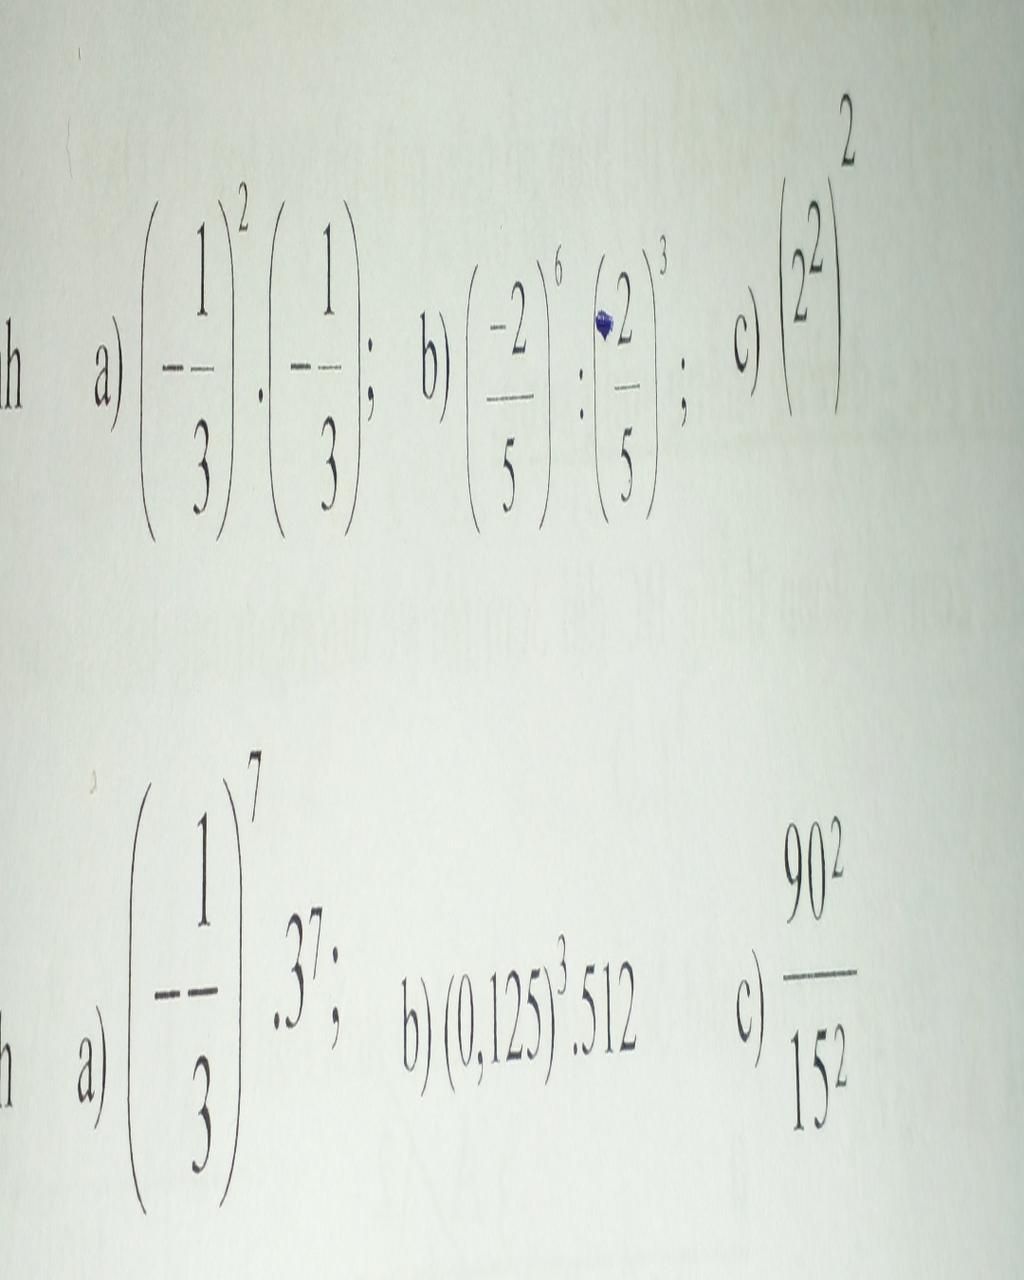 h a) (-1/3)² . (-1/3); b) (-2/5)⁶ : (-2/5)³ ; c) (2²)²
h a) (-1/3)⁷ .3⁷; b) (0,125)³.512 c) 90²/15²